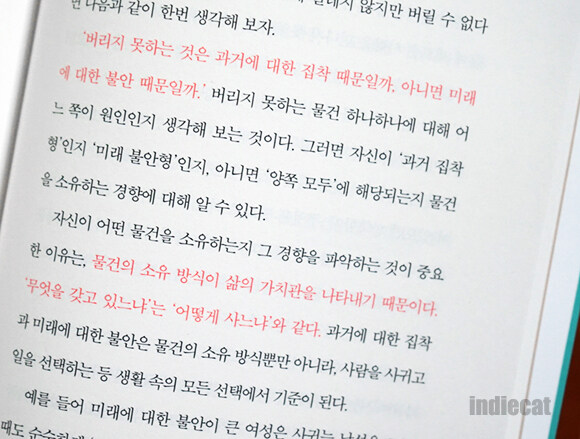 다음과 같이 한번 생각해 보자.
않지만 버릴 수 없다
‘버리지 못하는 것은 과거에 대한 집착 때문일까, 아니면 미래
에 대한 불안 때문일까.’ 버리지 못하는 물건 하나하나에 대해 어
느 쪽이 원인인지 생각해 보는 것이다. 그러면 자신이 ‘과거 집착
형’인지 ‘미래 불안형’인지, 아니면 ‘양쪽 모두’에 해당되는지 물건
을 소유하는 경향에 대해 알 수 있다.
자신이 어떤 물건을 소유하는지 그 경향을 파악하는 것이 중요
한 이유는, 물건의 소유 방식이 삶의 가치관을 나타내기 때문이다.
‘무엇을 갖고 있느냐’는 ‘어떻게 사느냐’와 같다. 과거에 대한 집착
과 미래에 대한 불안은 물건의 소유 방식뿐만 아니라, 사람을 사귀고
일을 선택하는 등 생활 속의 모든 선택에서 기준이 된다.
예를 들어 미래에 대한 불안이 큰 여성은 사귀는
indiecat